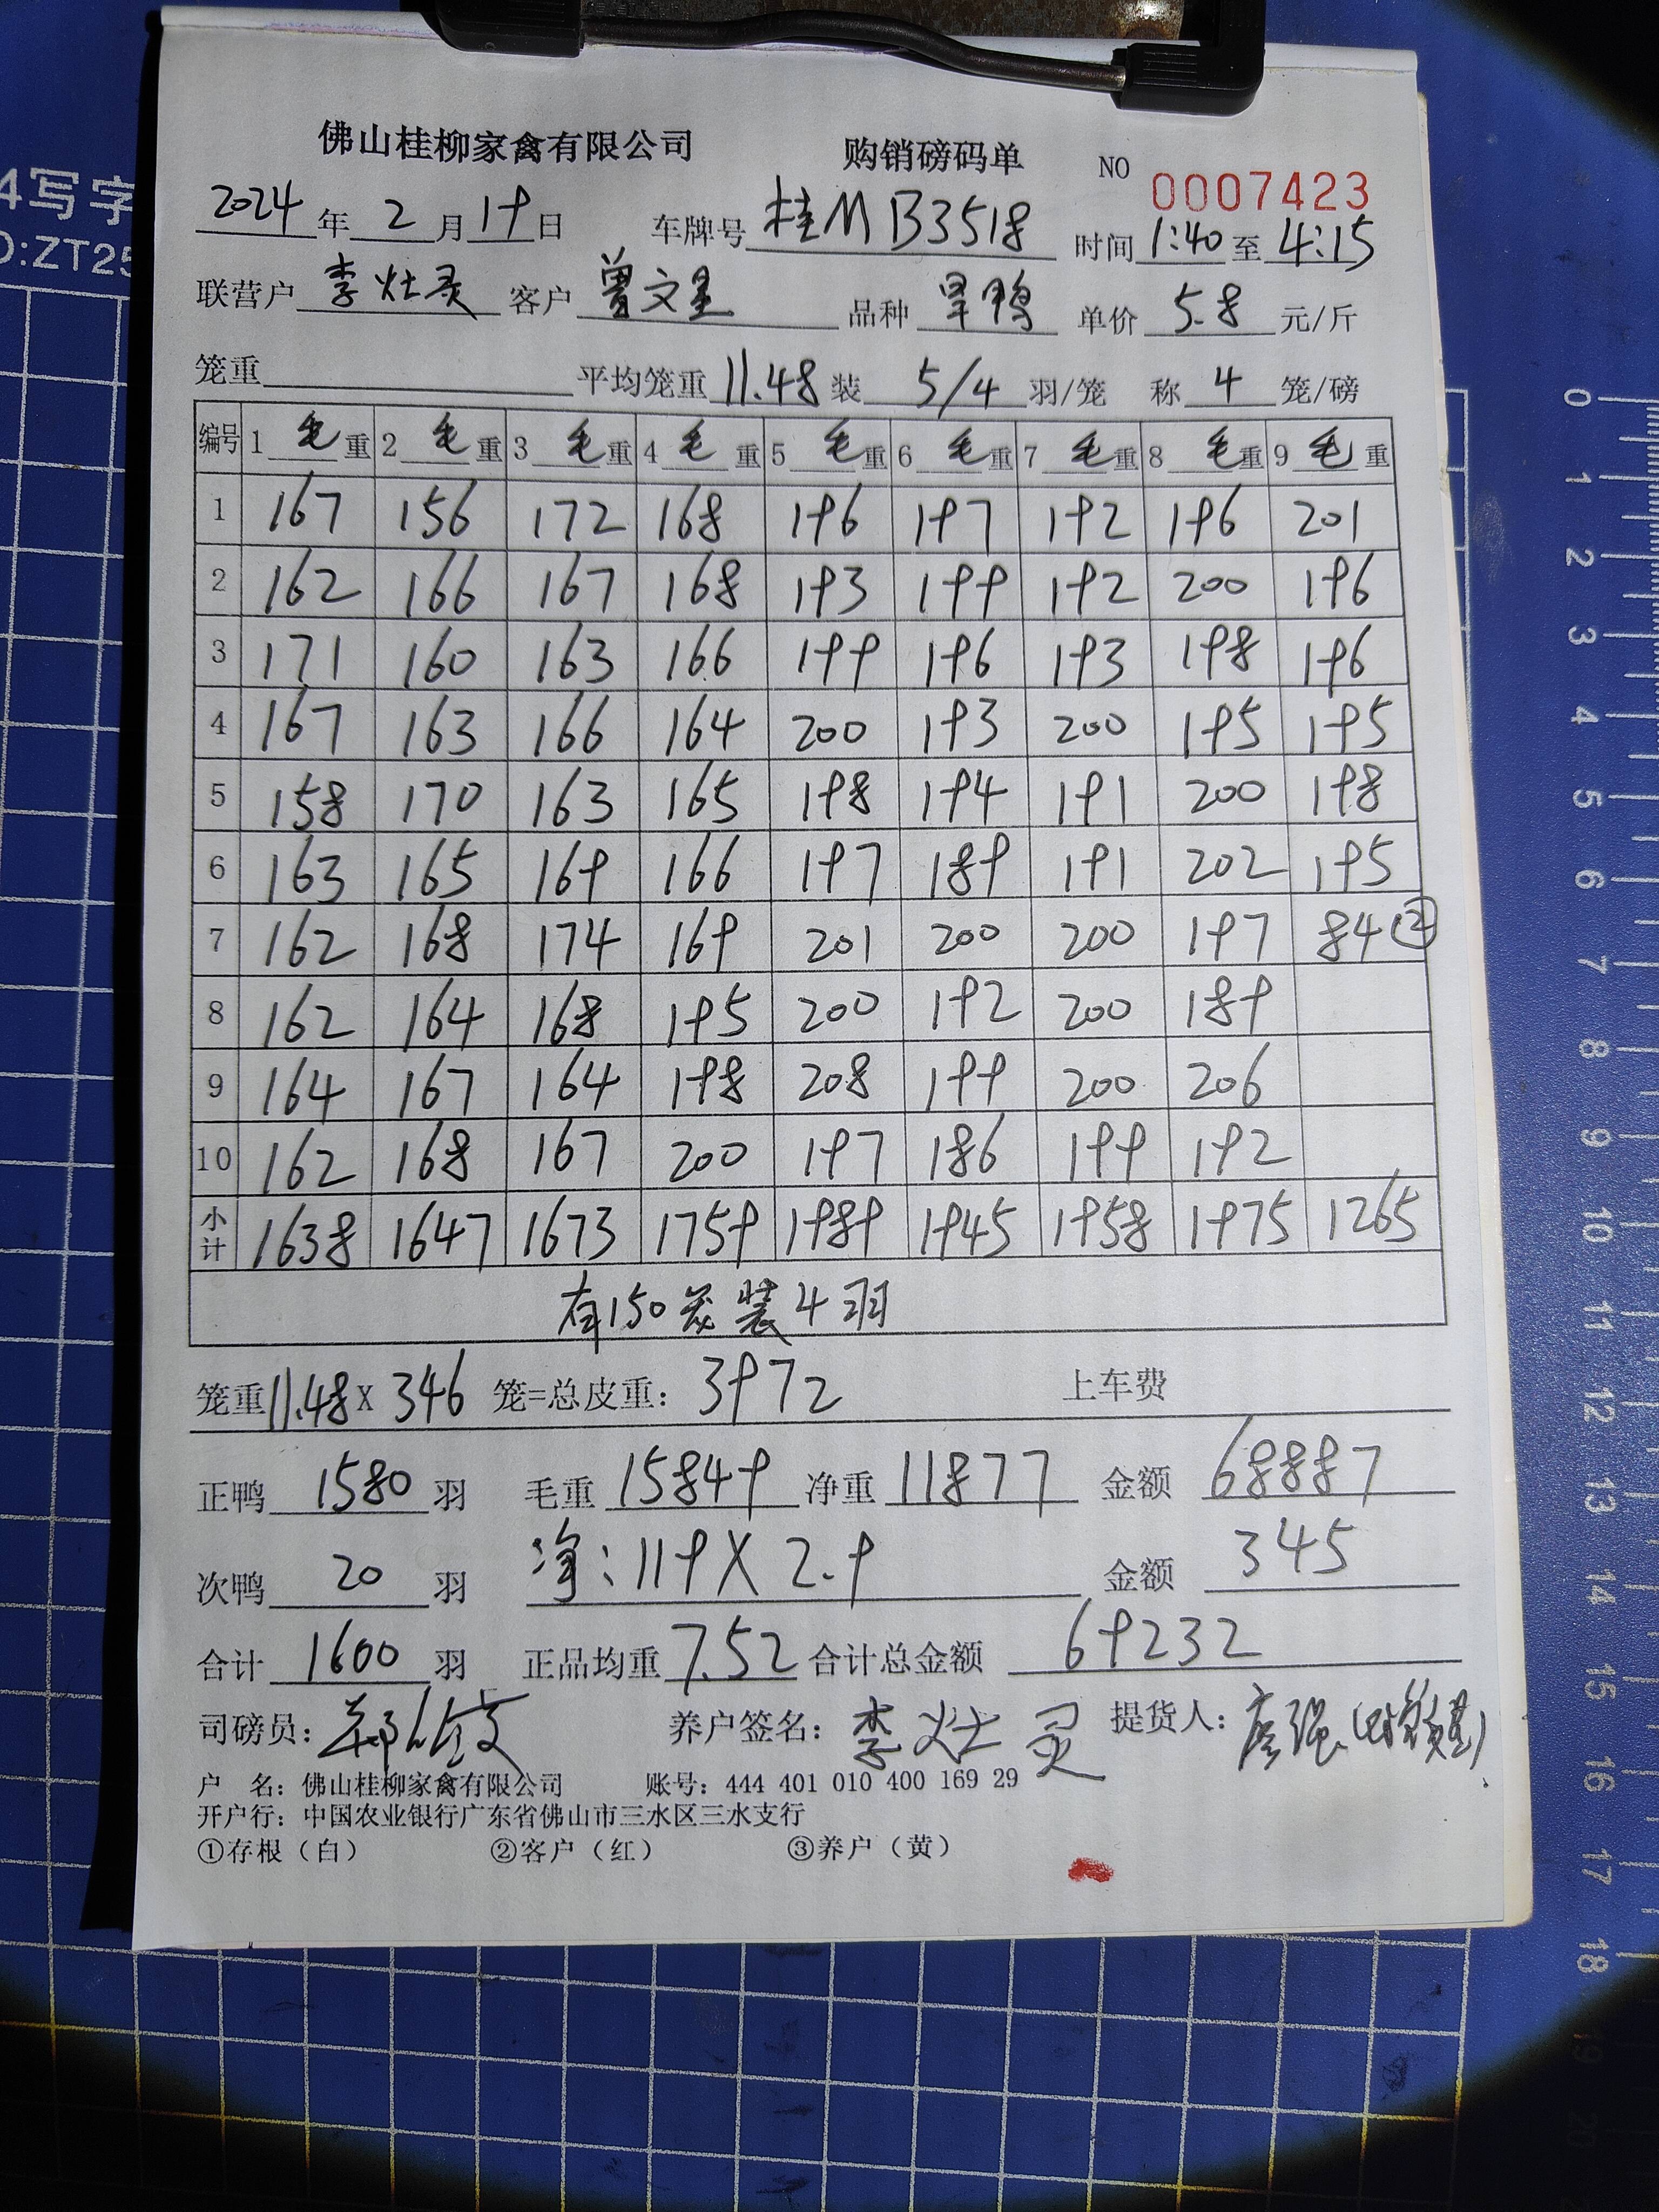 佛山桂柳家禽有限公司 购销磅码单 NO 0007423
2024年2月19日 车牌号 桂MB3518 时间1:40至4:15
联营户 李灶灵 客户 曾文星 品种 旱鸭 单价 5.8 元/斤
笼重 平均笼重 11.48 装 5/4 羽/笼 称 4 笼/磅
编号 1毛重 2毛重 3毛重 4毛重 5毛重 6毛重 7毛重 8毛重 9毛重
1 167 156 172 168 196 197 192 196 201
2 162 166 167 168 193 199 192 200 196
3 171 160 163 166 199 196 193 198 196
4 167 163 166 164 200 193 200 195 195
5 158 170 163 165 198 194 191 200 198
6 163 165 169 166 197 189 191 202 195
7 162 168 174 169 201 200 200 197 84②
8 162 164 168 195 200 192 200 189
9 164 167 164 198 208 199 200 206
10 162 168 167 200 197 186 199 192
小计 1638 1647 1673 1759 1989 1945 1958 1975 1265
有150笼装4羽
笼重11.48X 346 笼=总皮重: 3972 上车费
正鸭 1580 羽 毛重 15849 净重 11877 金额 68887
次鸭 20 羽 净:119X2.9 金额 345
合计 1600 羽 正品均重 7.52 合计总金额 69232
司磅员: 养户签名: 李灶灵 提货人:
户 名: 佛山桂柳家禽有限公司 账号: 444 401 010 400 169 29
开户行: 中国农业银行广东省佛山市三水区三水支行
①存根（白） ②客户（红） ③养户（黄）
4写字
D:ZT25
0 1 2 3 4 5 6 7 8 9 10 11 12 13 14 15 16 17 18 19 20